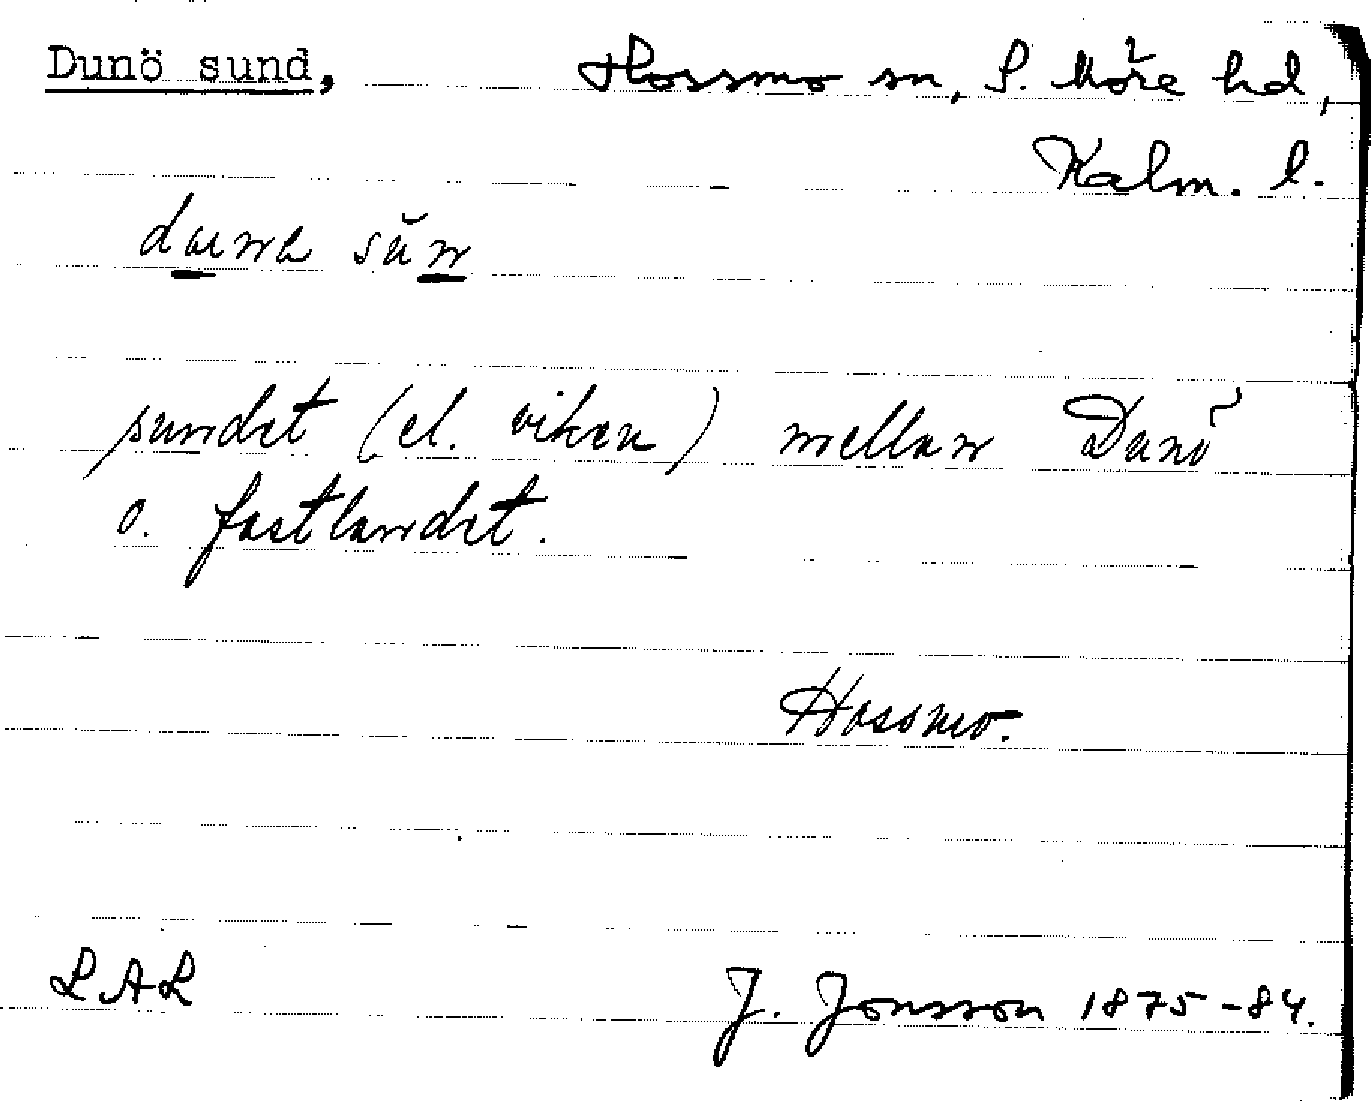 Dunö sund, Hossmo sn, S. Möre hd,
Kalm. l.
sundet (el. viken) mellan Dunö
o. fastlandet.
Hossmo.
LAL J. Jonsson 1875-84.